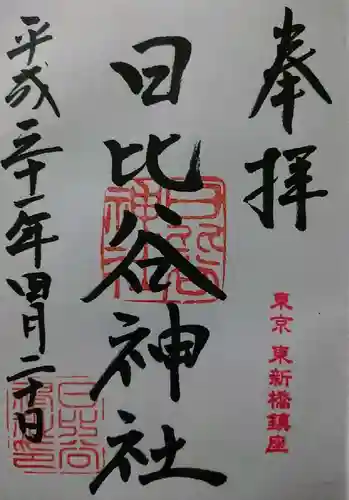 奉拝
東京 東新橋鎮座
日比谷神社
平成三十一年四月二十日
日比谷神社